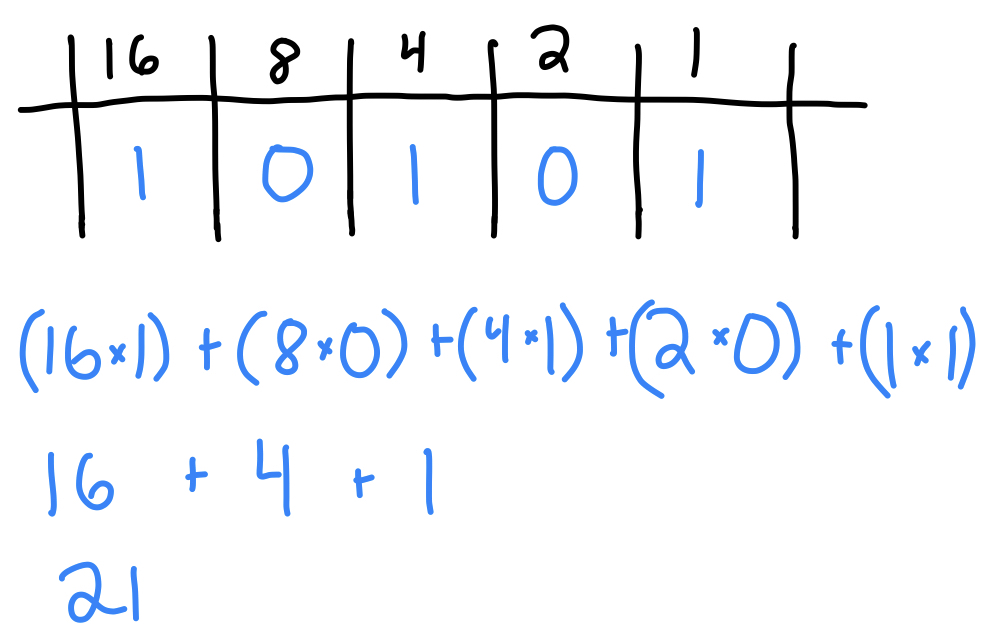 16 8 4 2 1
1 0 1 0 1
(16×1) + (8×0) + (4×1) + (2×0) + (1×1)
16 + 4 + 1
21